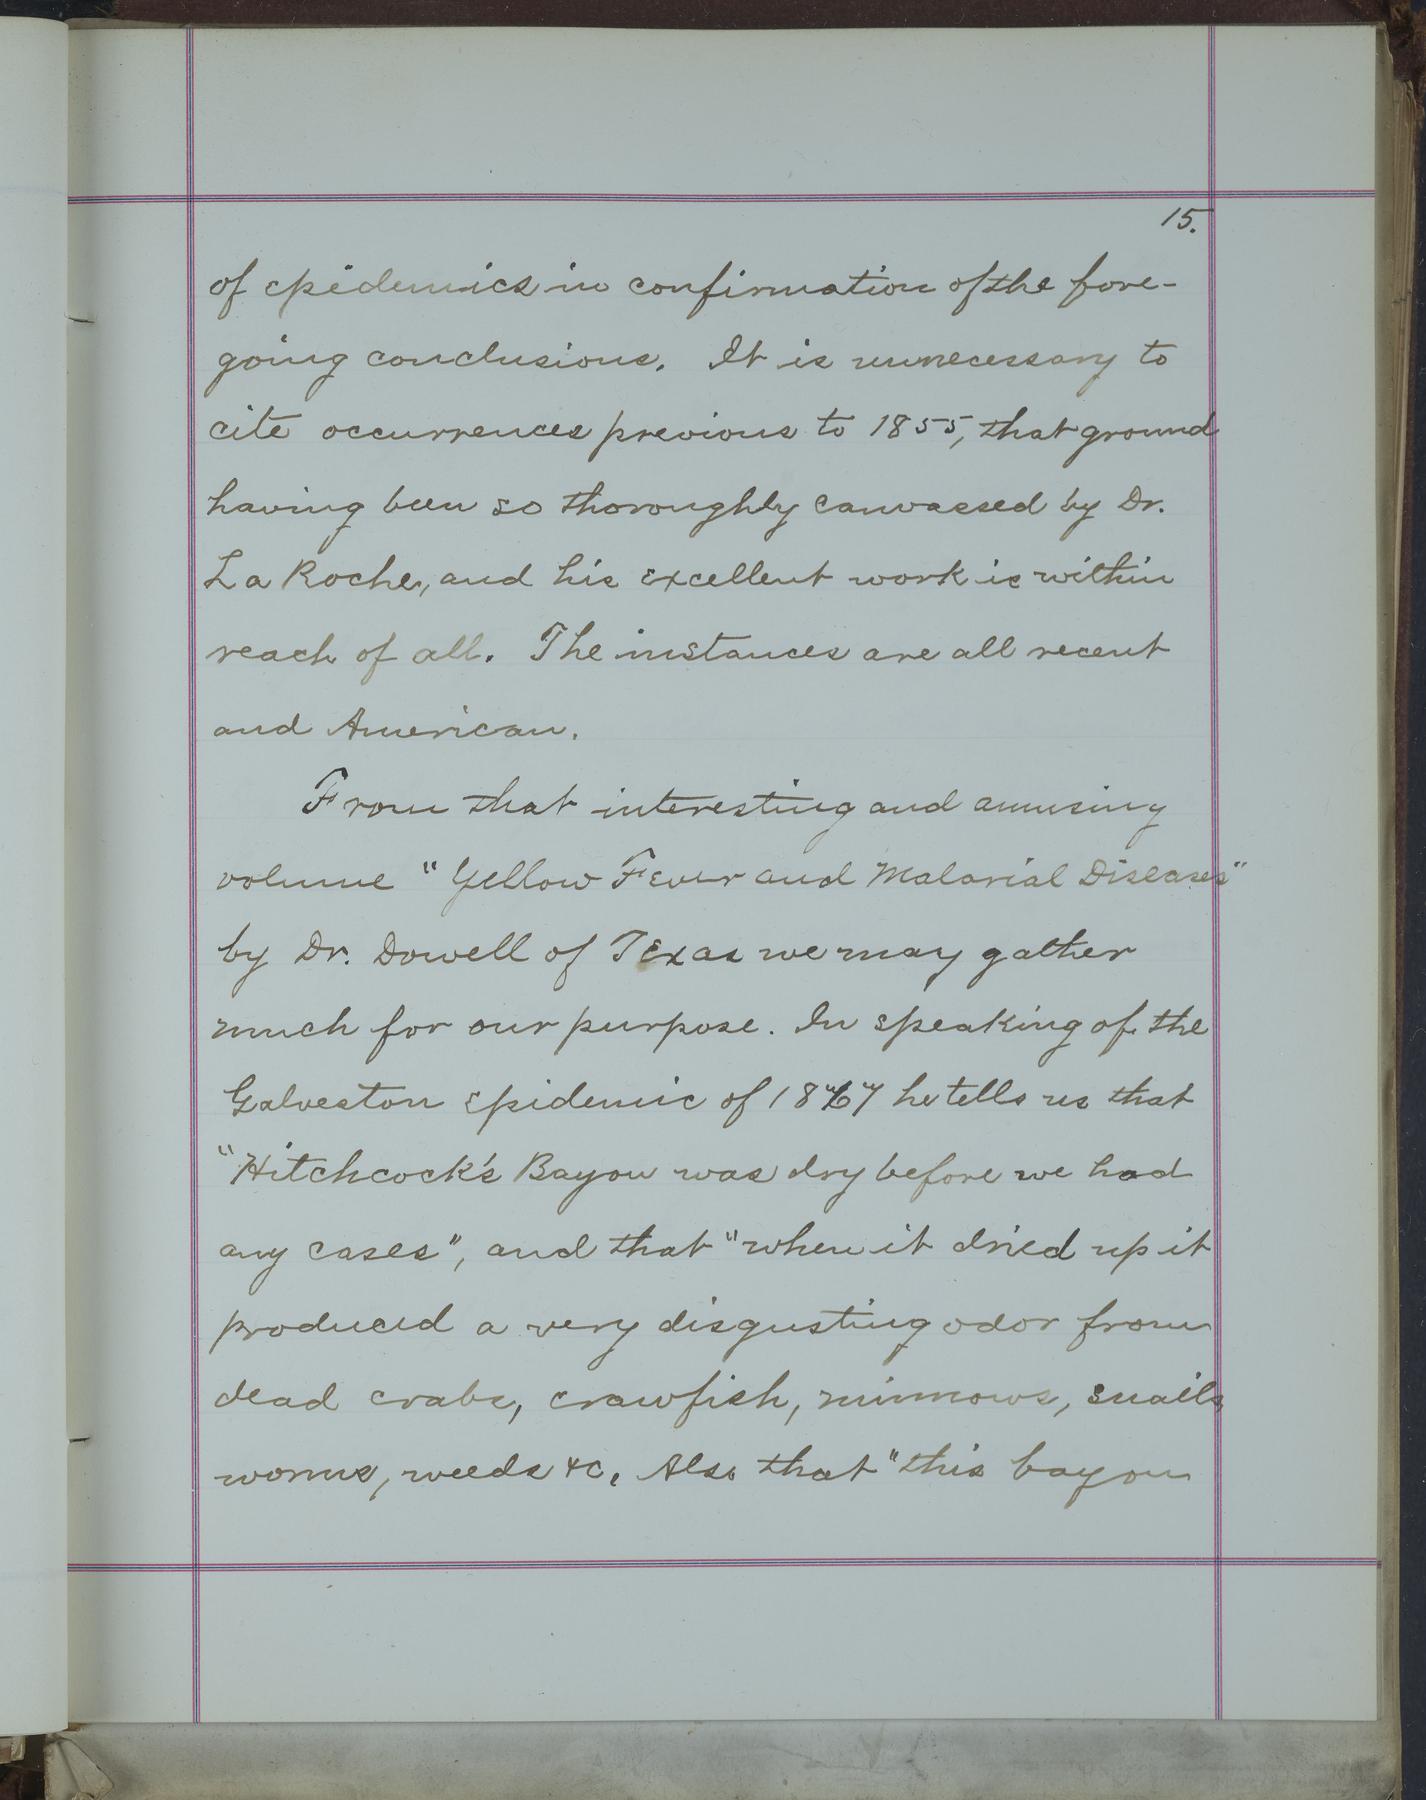 15.
of epidemics in confirmation of the fore-
going conclusions. It is unnecessary to
cite occurrences previous to 1855, that ground
having been so thoroughly canvassed by Dr.
La Roche, and his excellent work is within
reach of all. The instances are all recent
and American.
From that interesting and amusing
volume "Yellow Fever and Malarial Diseases"
by Dr. Dowell of Texas we may gather
much for our purpose. In speaking of the
Galveston epidemic of 1867 he tells us that
"Hitchcock's Bayou was dry before we had
any cases", and that "when it dried up it
produced a very disgusting odor from
dead crabs, crawfish, minnows, snails,
worms, weeds &c. Also that "this bayou